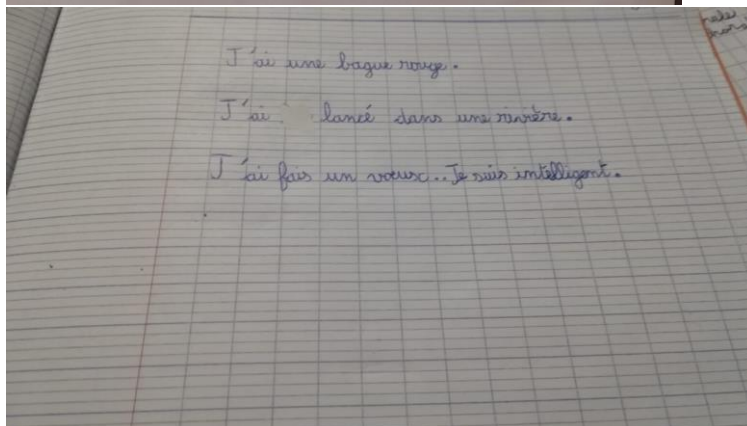 J'ai une bague rouge.
J'ai lancé dans une rivière.
J'ai fais un vœux.. Je suis intelligent.